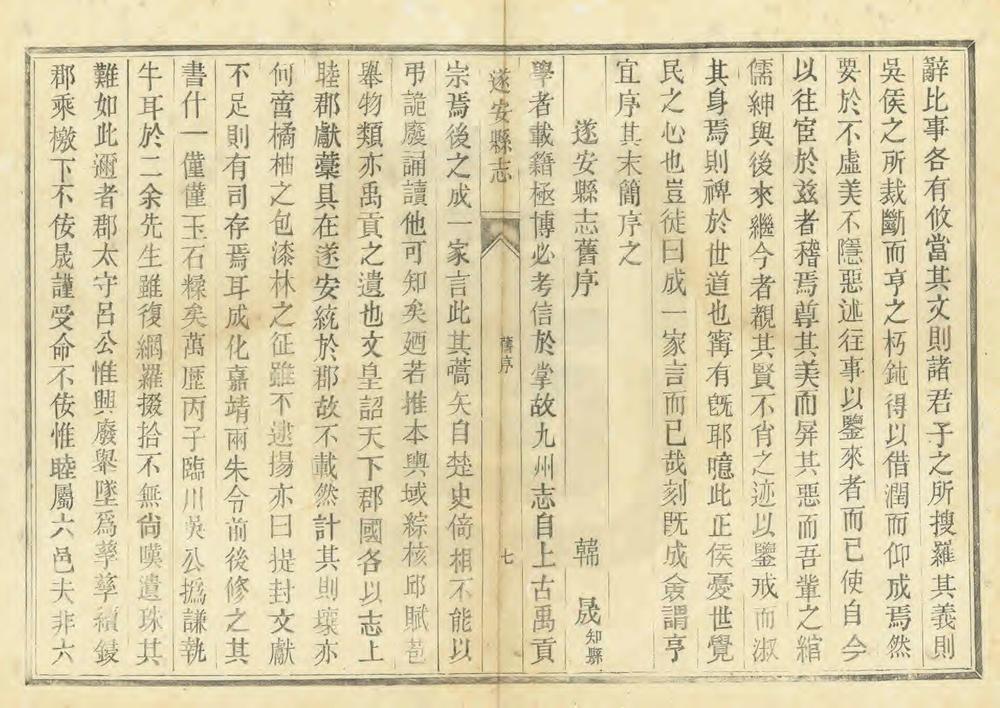 辭比事各有攸當其文則諸君子之所搜羅其義則
吳侯之所裁斷而亨之朽鈍得以借潤而仰成焉然
要於不虛美不隱惡述往事以鑒來者而已使自今
以往宦於茲者稽焉尊其美而屏其惡而吾輩之縮
儒紳與後來繼今者覩其賢不肖之迹以鑒戒而淑
其身焉則裨於世道也寧有旣耶噫此正侯憂世覺
民之心也豈徒曰成一家言而已哉刻既成僉謂亨
宜序其末簡序之
遂安縣志舊序
韓晟知縣
學者載籍極博必考信於掌故九州志自上古禹貢
遂安縣志
舊序
七
宗焉後之成一家言此其蒿矢自楚史倚相不能以
弔詭廢誦讀他可知矣廼若推本輿域綜核邱賦苞
舉物類亦禹貢之遺也文皇詔天下郡國各以志上
睦郡獻藁具在遂安統於郡故不載然計其則壤亦
何啻橘柚之包漆林之征雖不逮揚亦曰提封文獻
不足則有司存焉耳成化嘉靖兩朱令前後修之其
書什一僅僅玉石糅矣萬歷丙子臨川吳公撝謙執
牛耳於二余先生雖復網羅掇拾不無尙嘆遺珠其
難如此邇者郡太守呂公惟興廢舉墜爲孳孳續鋟
郡乘檄下不佞晟謹受命不佞惟睦屬六邑夫非六